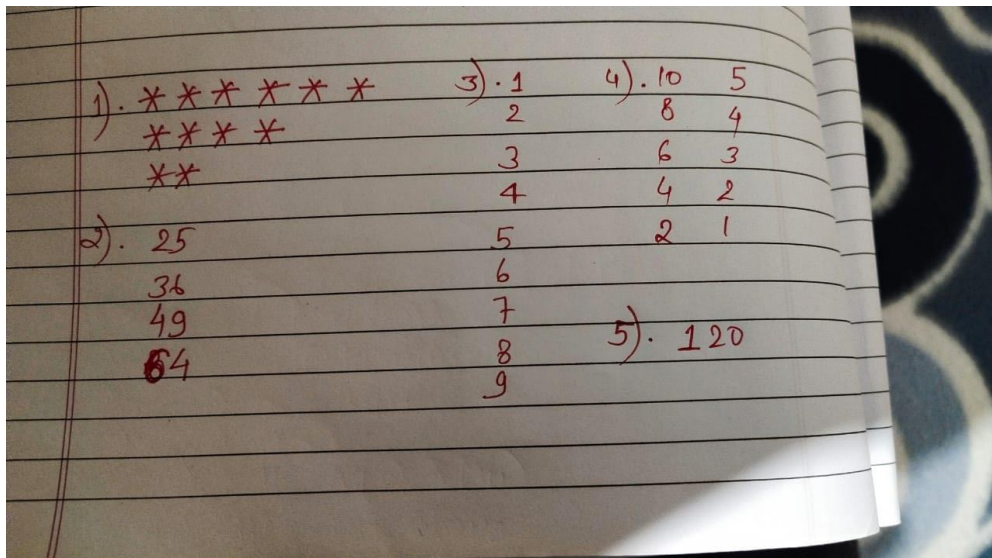 1). * * * * * *
* * * *
* *
2). 25
36
49
64
3). 1
2
3
4
5
6
7
8
9
4). 10 5
8 4
6 3
4 2
2 1
5). 120